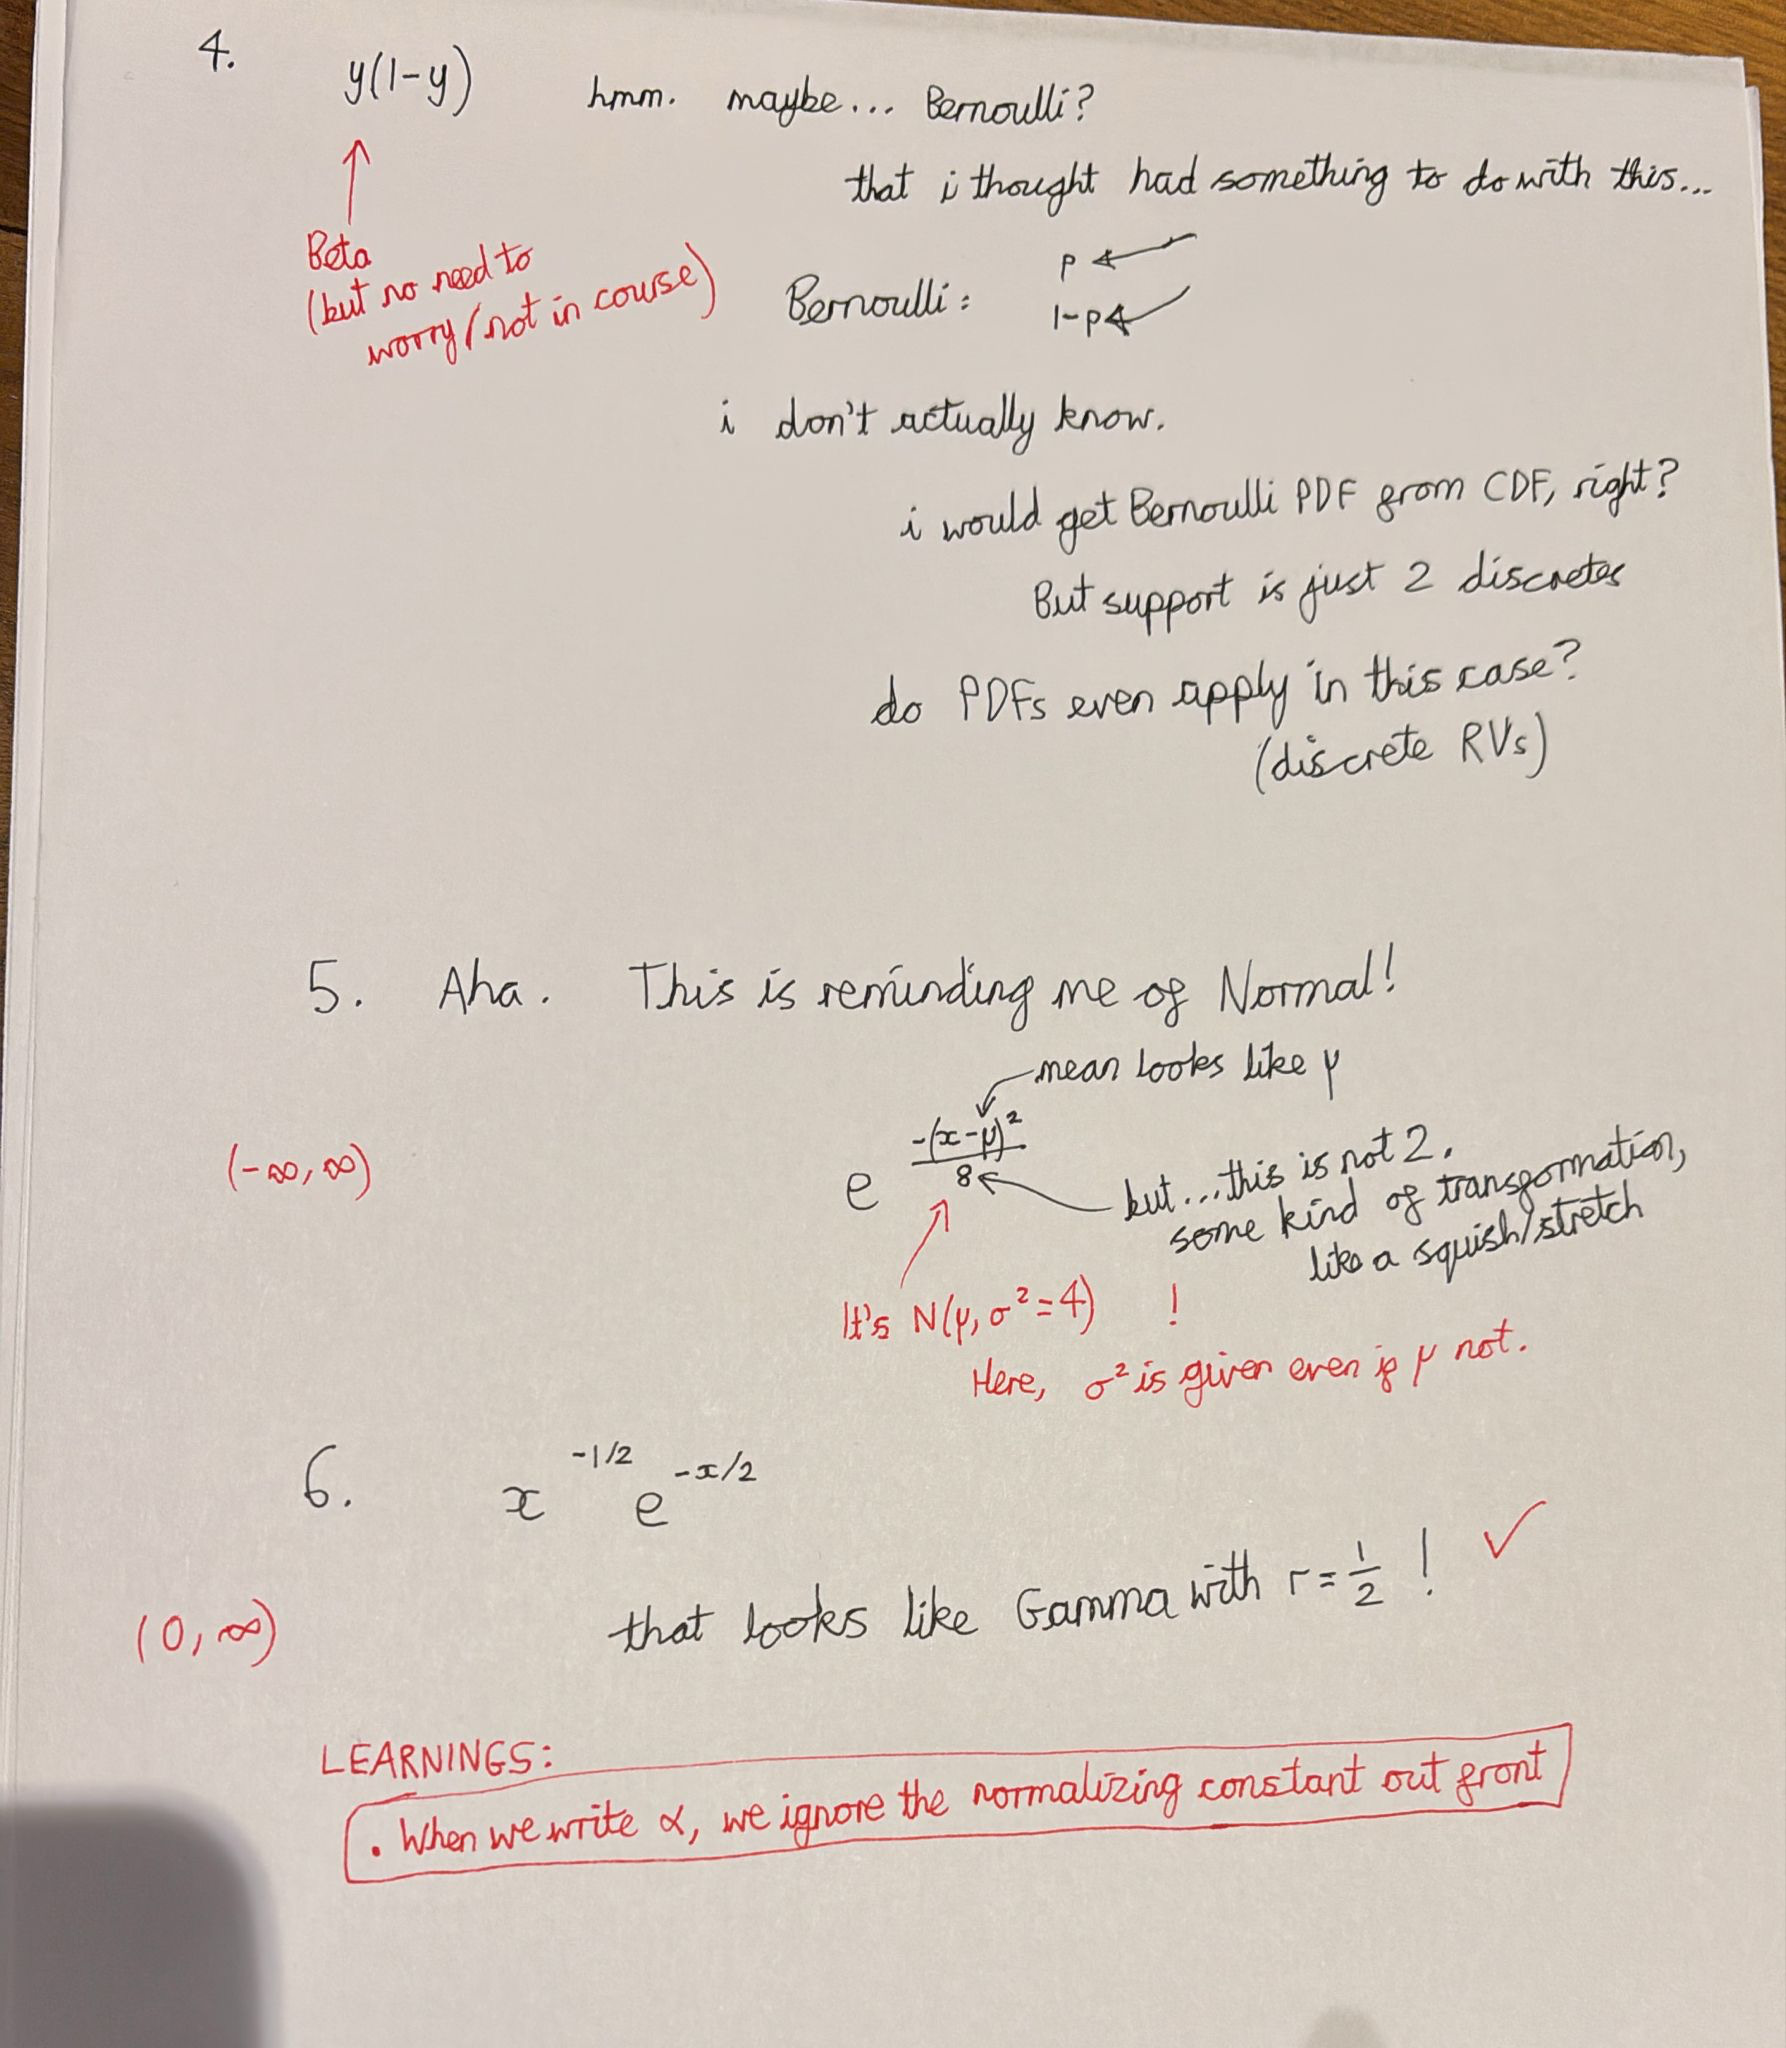 4.
y(1-y) hmm. maybe... Bernoulli?
that i thought had something to do with this...
Beta
(but no need to
worry/not in course)
Bernoulli: p
1-p
i don't actually know.
i would get Bernoulli PDF from CDF, right?
But support is just 2 discretes
do PDFs even apply in this case?
(discrete RVs)
5. Aha. This is reminding me of Normal!
mean looks like μ
(-∞, ∞)
e^(-(x-μ)²/8)
but...this is not 2.
some kind of transformation,
like a squish/stretch
It's N(μ, σ²=4) !
Here, σ² is given even if μ not.
6. x^(-1/2) e^(-x/2)
(0, ∞)
that looks like Gamma with r = 1/2 ! ✓
LEARNINGS:
• When we write ∝, we ignore the normalizing constant out front